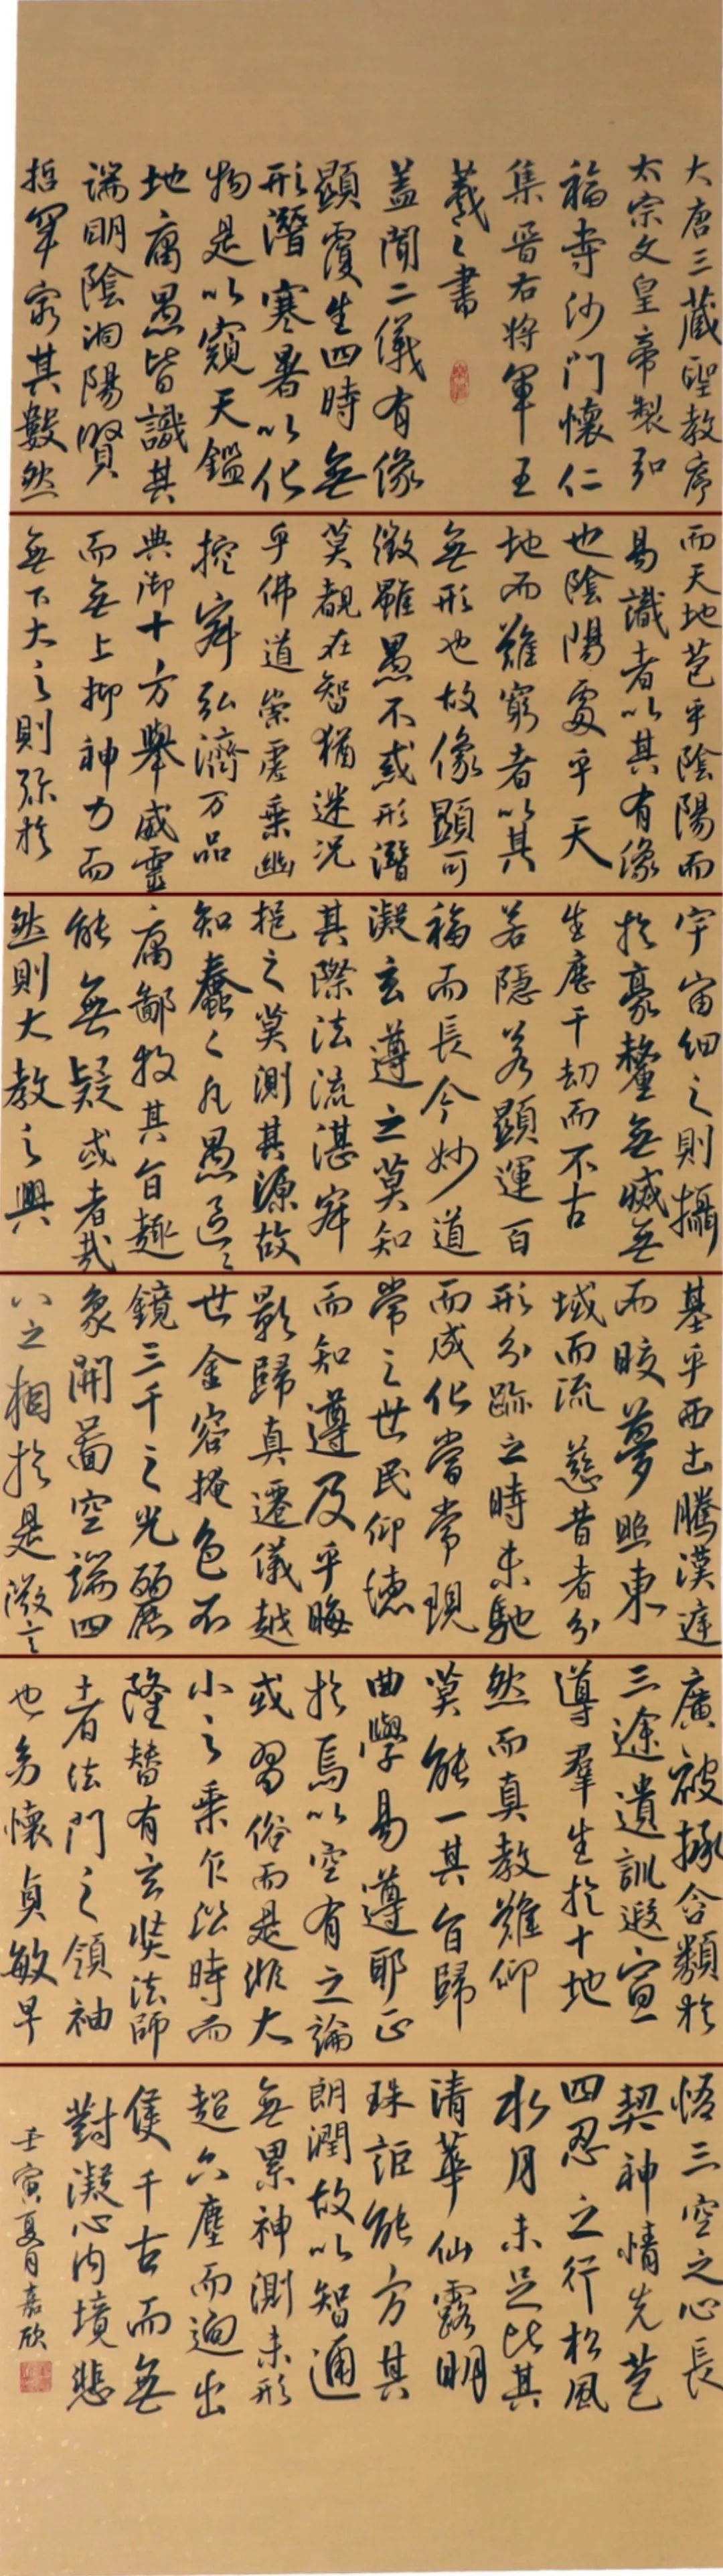 大唐三藏聖教序
太宗文皇帝製弘
福寺沙門懷仁
集晉右將軍王
羲之書
蓋聞二儀有像
顯覆生四時無
形潛寒暑以化
物是以窺天鑑
地庸愚皆識其
端明陰洞陽賢
哲罕窮其數然
而天地苞乎陰陽而
易識者以其有像
也陰陽處乎天
地而難窮者以其
無形也故像顯可
徵雖愚不惑形潛
莫覩在智猶迷況
乎佛道崇虛乘幽
控寂弘濟万品
典御十方舉威靈
而無上抑神力而
無下大之則弥於
宇宙細之則攝
於豪釐無滅無
生歷千劫而不古
若隱若顯運百
福而長今妙道
凝玄遵之莫知
其際法流湛寂
挹之莫測其源故
知蠢々凡愚區々
庸鄙投其旨趣
能無疑或者哉
然則大教之興
基乎西土騰漢庭
而皎夢照東
域而流慈昔者分
形分跡之時未馳
而成化當常現
常之世民仰德
而知遵及乎晦
影歸真遷儀越
世金容掩色不
鏡三千之光麗
象開圖空端四
八之相於是微言
廣被拯含類於
三途遺訓遐宣
導羣生於十地
然而真教難仰
莫能一其旨歸
曲學易遵耶正
於焉以空有之論
或習俗而是非大
小之乘乍沿時而
隆替有玄奘法師
者法門之領袖
也幼懷貞敏早
悟三空之心長
契神情先苞
四忍之行松風
水月未足比其
清華仙露明
珠詎能方其
朗潤故以智通
無累神測未形
超六塵而迥出
隻千古而無
對凝心內境悲
壬寅夏月嘉欣